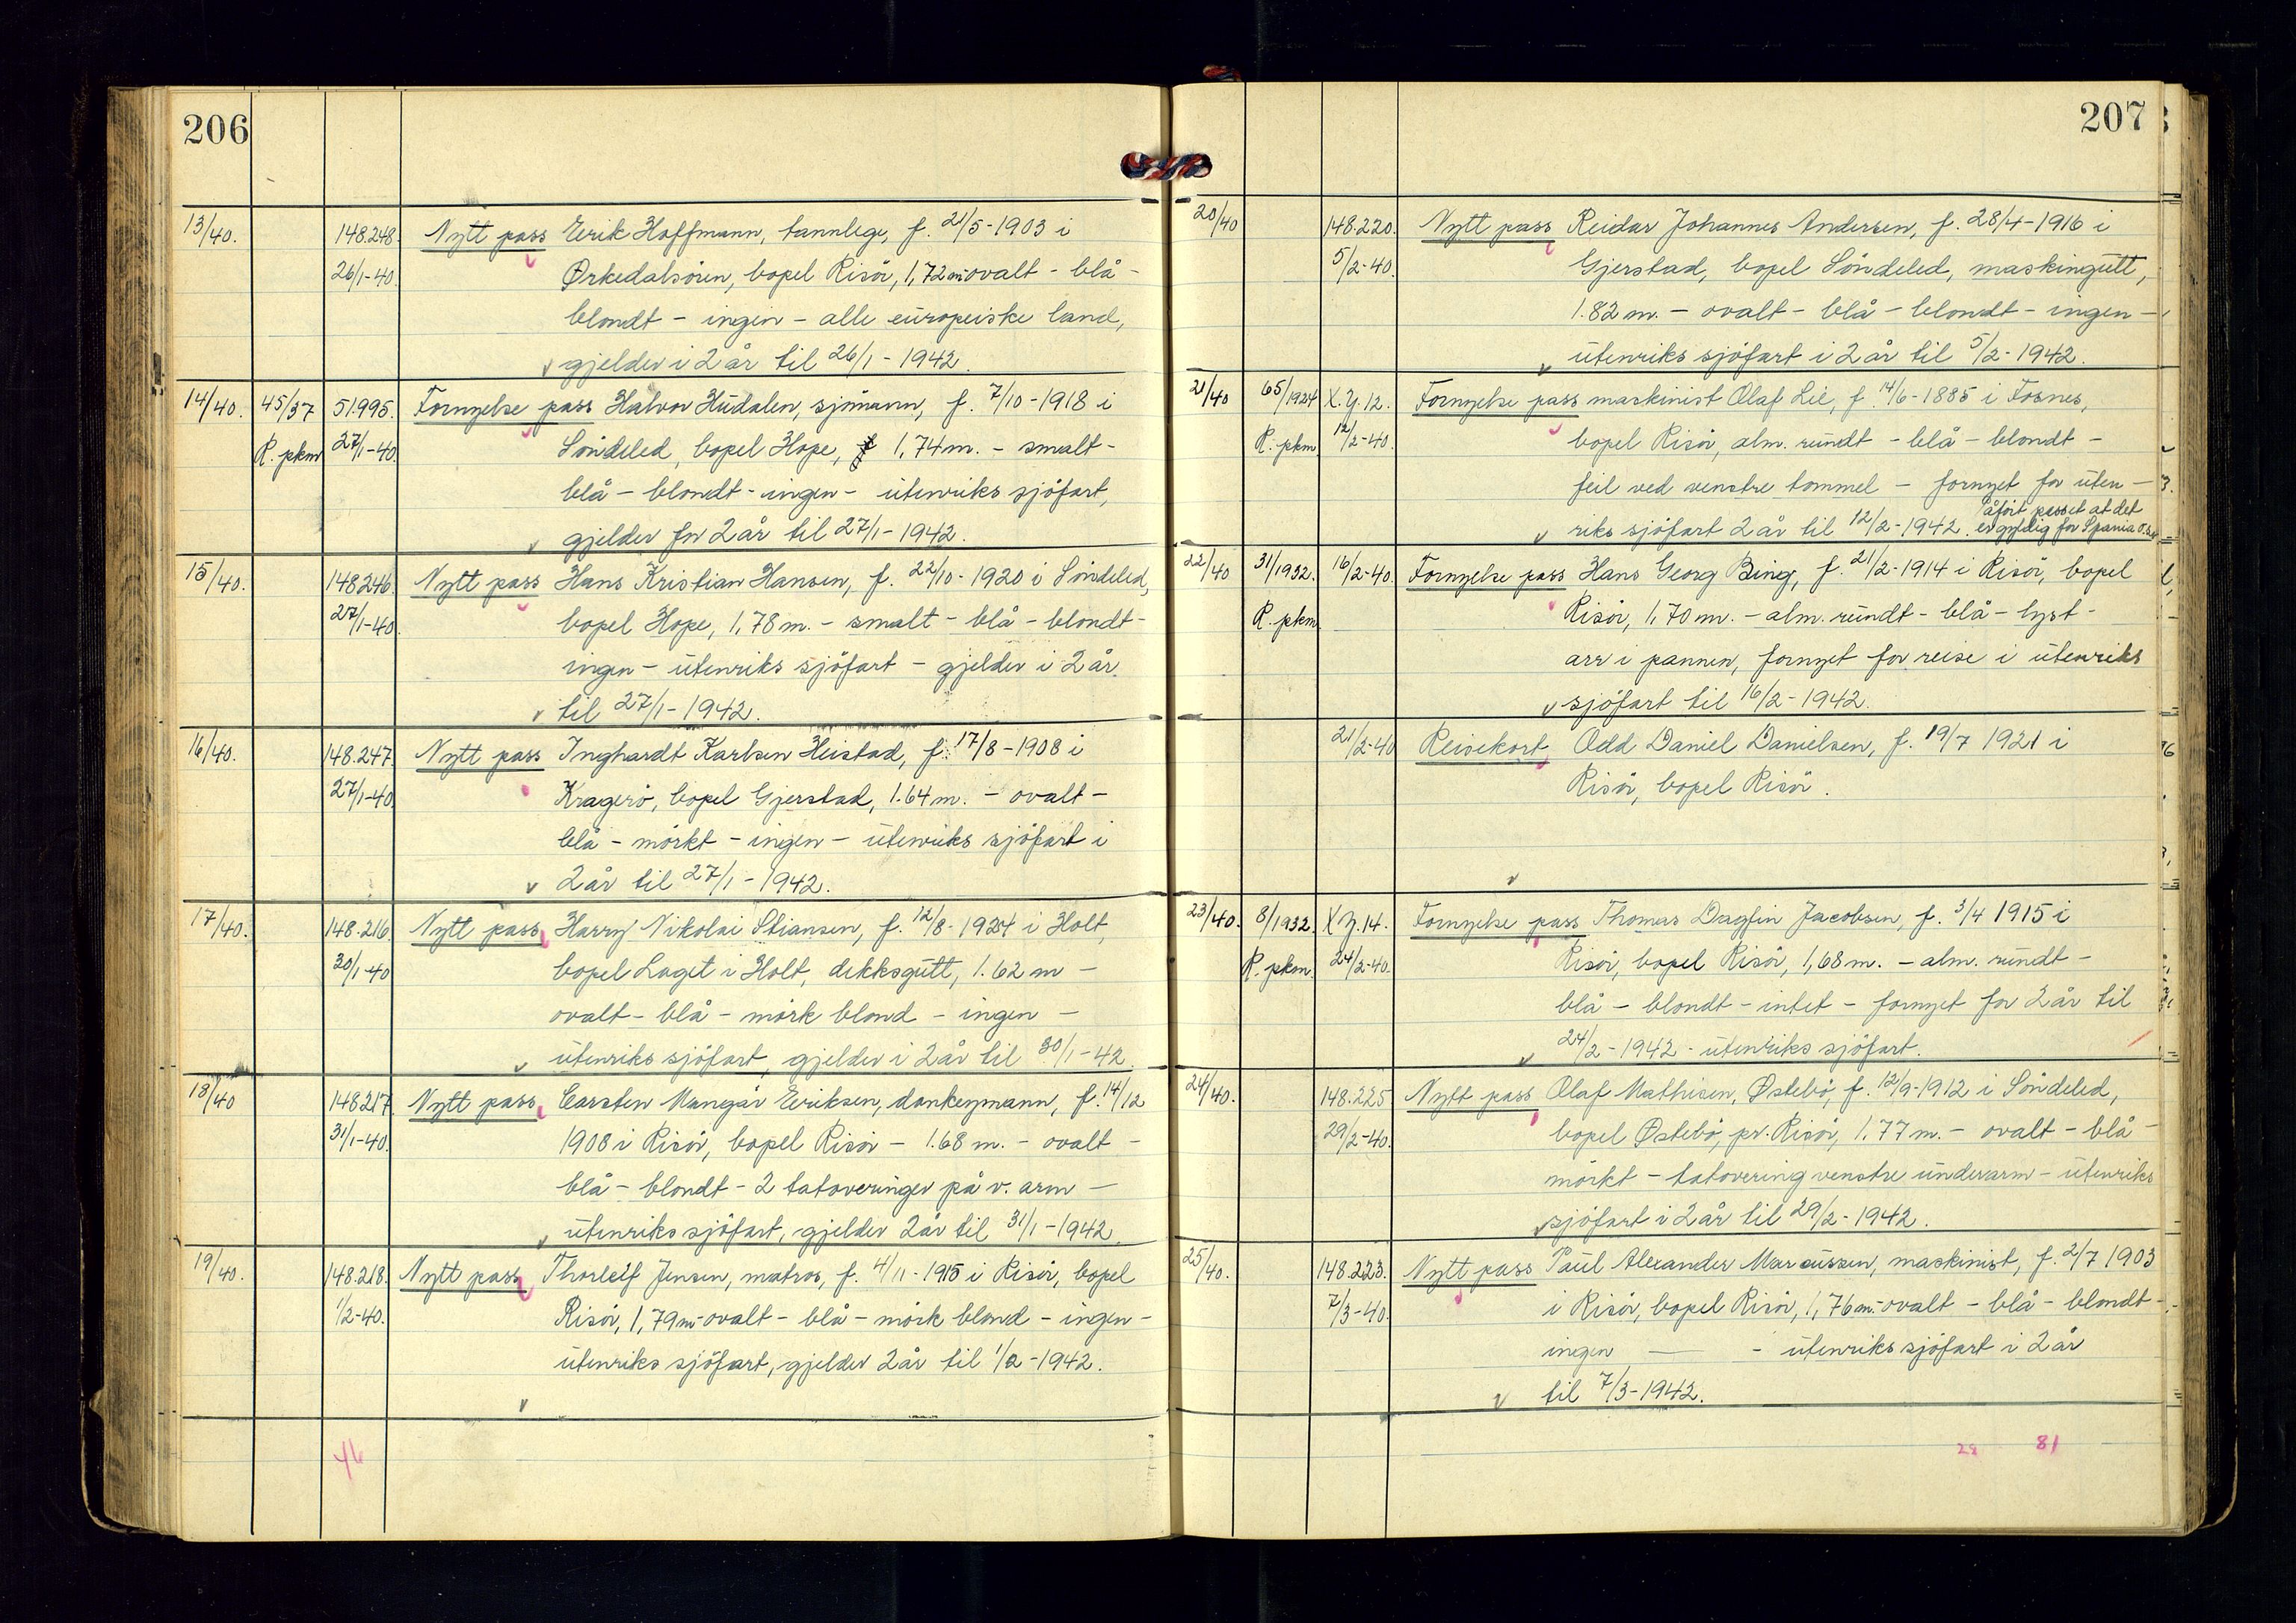 206
13/40. 148.248. Nytt pass Erik Hoffmann, tannlege, f. 21/5-1903 i
26/1-40. Ørkedalsören, bopel Risör, 1,72m ovalt - blå -
blondt - ingen - alle europeiske land,
gjelder i 2 år til 26/1 - 1942.
14/40. 45/37 51.995. Fornyelse pass Halvor Hudalen, sjömann, f. 7/10-1918 i
R. pkm 27/1-40. Söndeled, bopel Hope, 1,74m. - smalt -
blå - blondt - ingen - utenriks sjöfart,
gjelder for 2 år til 27/1 - 1942.
15/40. 148.246. Nytt pass Hans Kristian Hansen, f. 22/10-1920 i Söndeled,
27/1-40. bopel Hope, 1,78m. - smalt - blå - blondt -
ingen - utenriks sjöfart - gjelder i 2 år.
til 27/1 - 1942.
16/40. 148.247. Nytt pass Inghardt Karlsen Heistad, f. 17/8-1908 i
27/1-40. Kragerö, bopel Gjerstad, 1.64m. - ovalt -
blå - mörkt - ingen - utenriks sjöfart i
2 år til 27/1 - 1942.
17/40. 148.216. Nytt pass Harry Nikolai Stiansen, f. 12/8-1924 i Holt,
30/1-40 bopel Laget i Holt, dekksgutt, 1.62 m -
ovalt - blå - mörk blond - ingen -
utenriks sjöfart, gjelder i 2 år til 30/1-42.
18/40 148.217. Nytt pass Carsten Mangar Eriksen, donkeymann, f. 14/12
31/1-40. 1908 i Risör, bopel Risör - 1.68 m. - ovalt -
blå - blondt - 2 tatoveringer på v. arm -
utenriks sjöfart, gjelder 2 år til 31/1 - 1942.
19/40. 148.218. Nytt pass Thorleif Jensen, matros, f. 4/11-1915 i Risör, bopel
1/2-40. Risör, 1,79m ovalt - blå - mörk blond - ingen -
utenriks sjöfart, gjelder 2 år til 1/2-1942.
46
207
20/40 148.220. Nytt pass Reidar Johannes Andersen, f. 28/4-1916 i
5/2-40. Gjerstad, bopel Söndeled, maskingutt,
1.82 m. - ovalt - blå - blondt - ingen -
utenriks sjöfart i 2 år til 5/2-1942.
21/40 65/1924 X.Y.12. Fornyelse pass maskinist Olaf Lie, f. 14/6-1885 i Fosnes,
R. pkm. 12/2-40. bopel Risör, alm. rundt - blå - blondt -
feil ved venstre tommel - fornyet for uten-
påfört passet at det
riks sjöfart 2 år til 12/2-1942. er gyldig for Spania
22/40 31/1932. 16/2-40. Fornyelse pass Hans Georg Bing, f. 21/2-1914 i Risör, bopel
R. pkm. Risör, 1,70 m. - alm. rundt - blå - lyst -
arr i pannen, fornyet for reise i utenriks
sjöfart til 16/2-1942.
21/2-40 Reisekort, Odd Daniel Danielsen, f. 19/7 1921 i
Risör, bopel Risör.
23/40. 8/1932. X.Y.14. Fornyelse pass Thomas Dagfin Jacobsen, f. 3/4 1915 i
R. pkm. 24/2-40. Risör, bopel Risör, 1,68m. - alm. rundt -
blå - blondt - intet - fornyet for 2 år til
24/2-1942 - utenriks sjöfart.
24/40. 148.225 Nytt pass Olaf Mathisen, Østebö, f. 12/9-1912 i Söndeled,
29/2-40. bopel Østebö, pr. Risör, 1.77 m. - ovalt - blå -
mörkt - tatovering venstre underarm - utenriks
sjöfart i 2 år til 29/2-1942.
25/40. 148.223. Nytt pass Paul Alexander Marcussen, maskinist, f. 2/7 1903
7/3-40. i Risör, bopel Risör, 1,76m. ovalt - blå - blondt -
ingen - utenriks sjöfart i 2 år
til 7/3-1942.
28 81